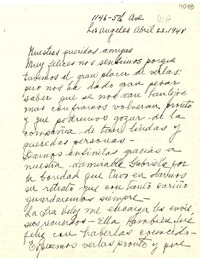 1146-5th Ave
Los Angeles Abril 22-1948
Nuestras queridas amigas
Muy felices nos sentimos porque
tuvimos el gran placer de verlas:
pero nos ha dado gran pesar
saber que se nos van tan lejos
mas confiamos volveran pronto
y que podremos gozar de la
compañia de tan lindas y
queridas personas-
Damos infinitas gracias a
nuestra admirable Gabriela por
la bondad que tuvo en darnos
su retrato que con tanto cariño
guardaremos siempre-
La Sra me encarga les envie
sus recuerdos- Ella también está
feliz con haberlas conocido-
Esperamos verlas pronto y que